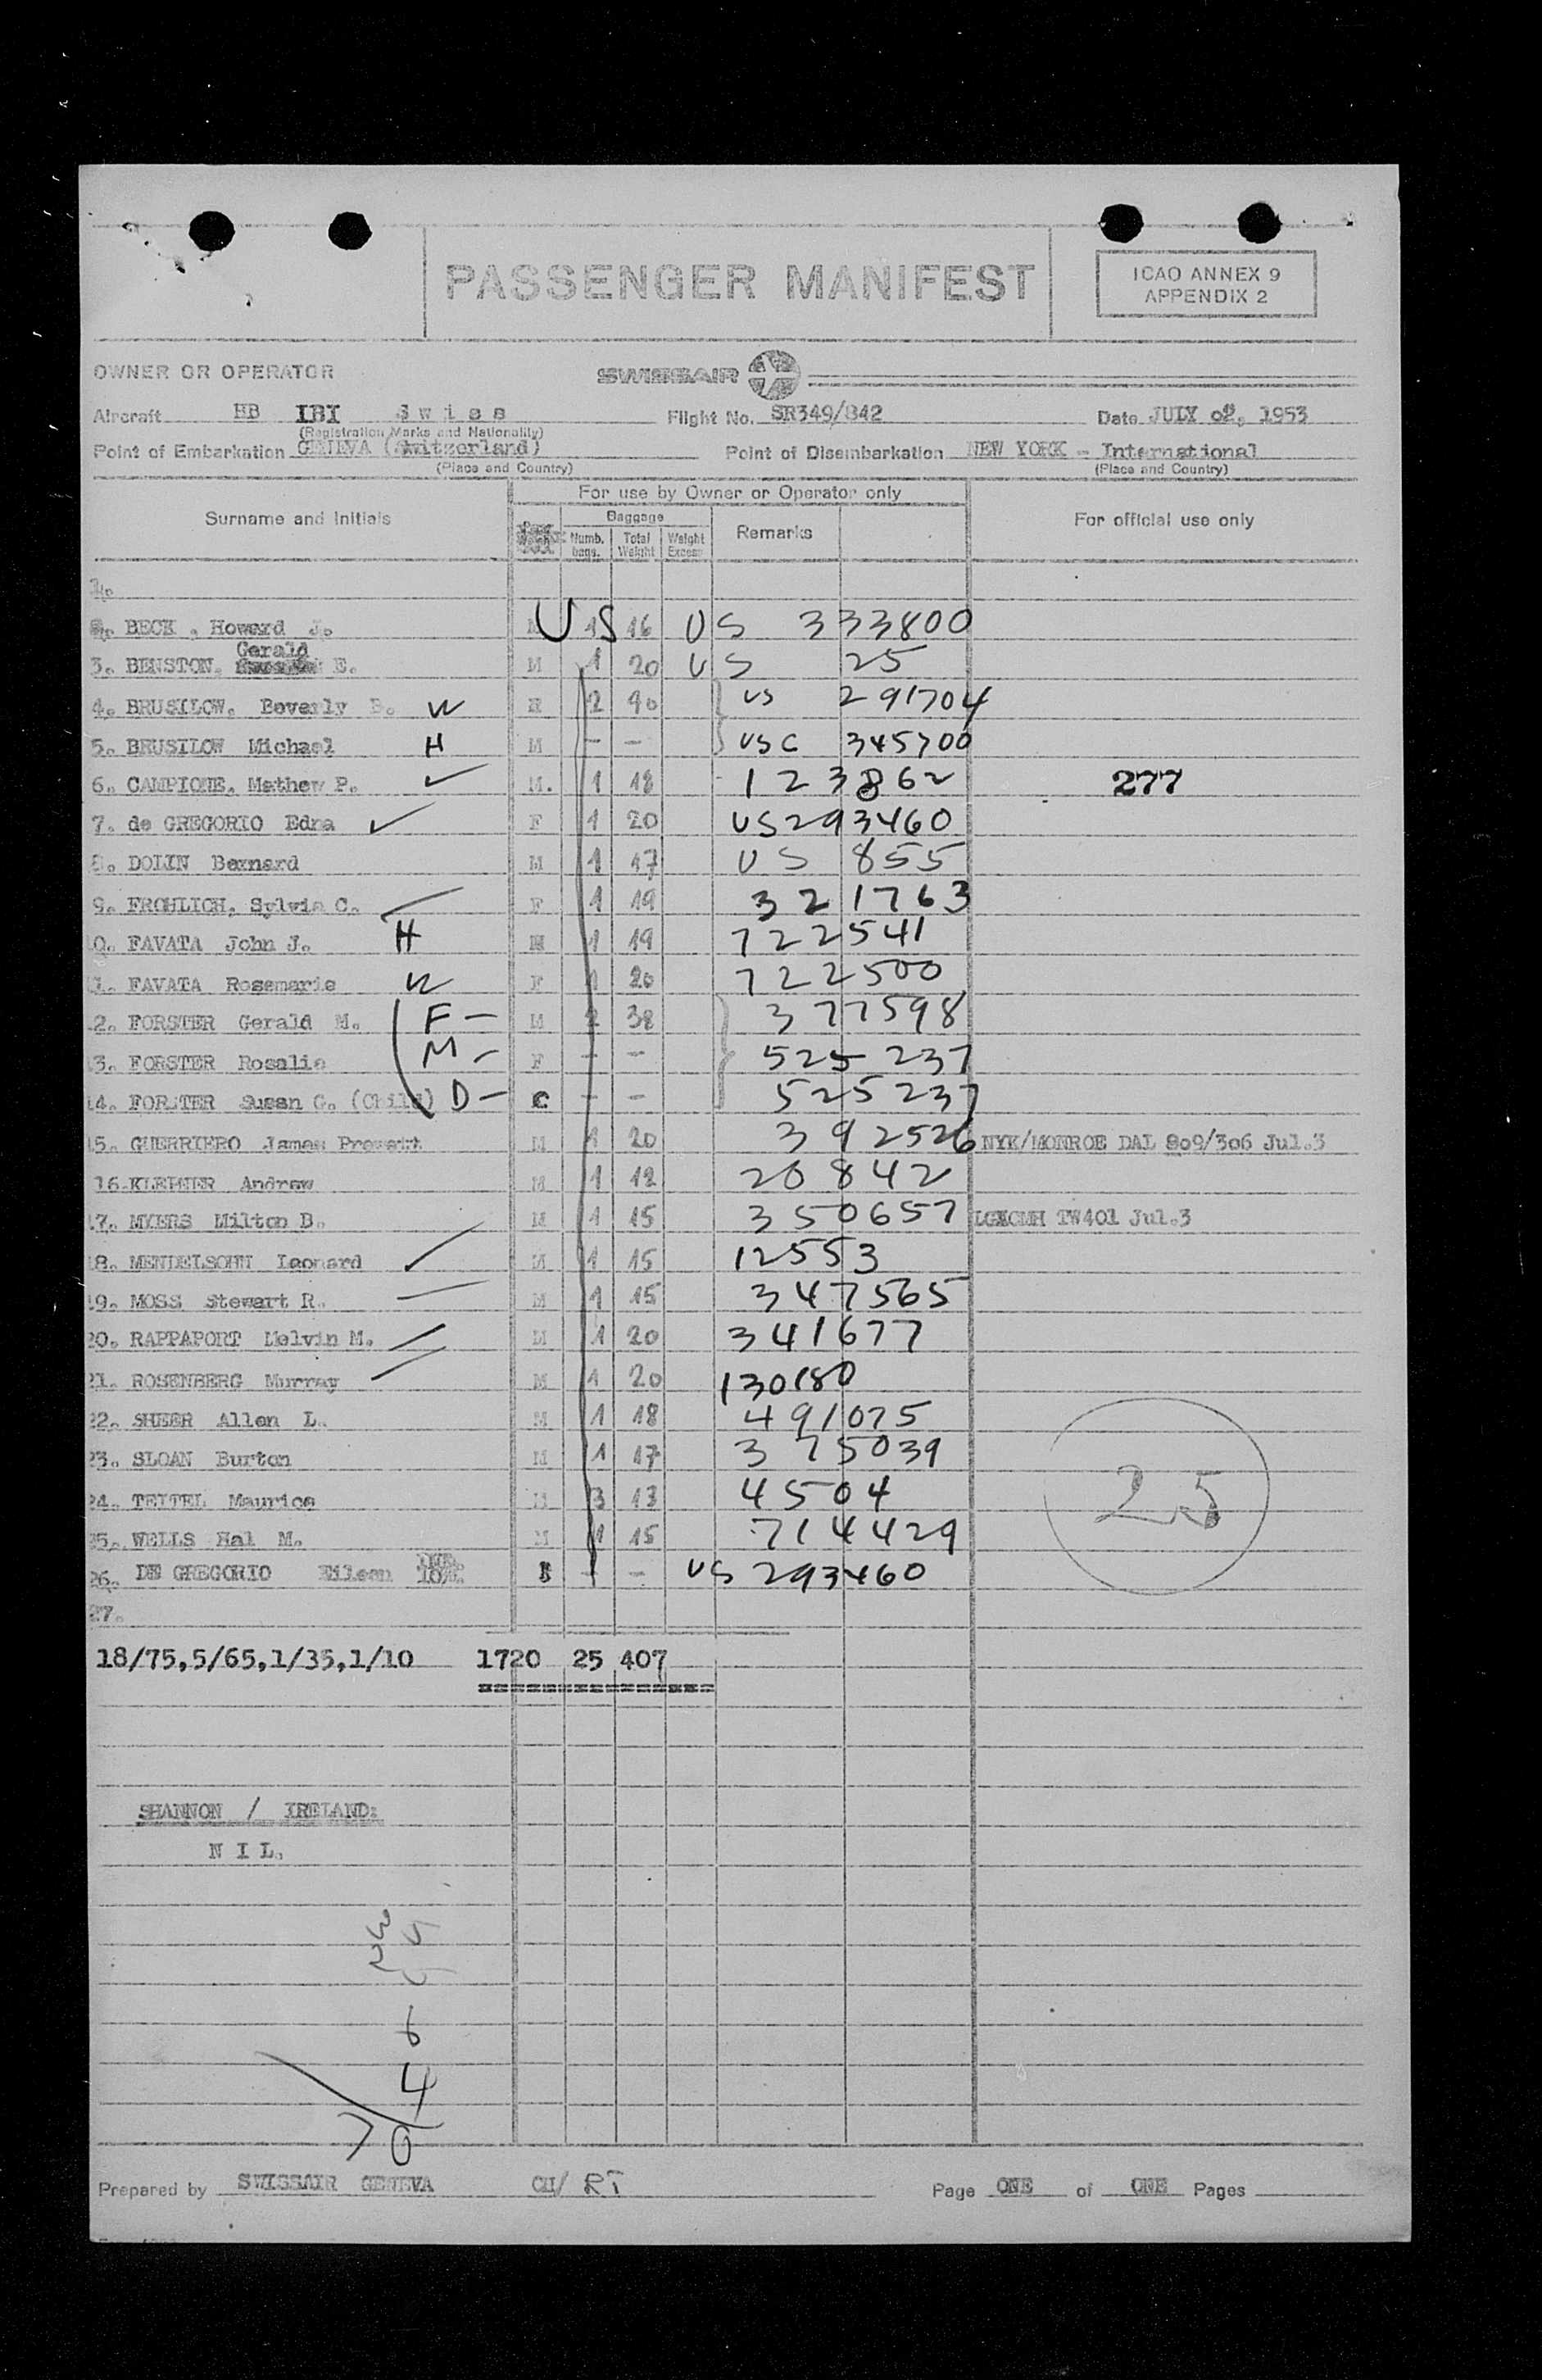 PASSENGER MANIFEST
ICAO ANNEX 9
APPENDIX 2
OWNER OR OPERATOR SWISSAIR
Aircraft HB IBI Swiss Flight No. SR349/842 Date JULY 02, 1953
(Registration Marks and Nationality)
Point of Embarkation GENEVA (Switzerland) Point of Disembarkation NEW YORK - International
(Place and Country) (Place and Country)
For use by Owner or Operator only
Surname and Initials Baggage Remarks For official use only
Numb. bags. Total Weight Weight Excess
1.
BECK, Howard J. US 1 16 US 333800
3. BENSTON, Gerald E. M 1 20 US 25
4. BRUSILOW, Beverly B. W 2 40 US 291704
5. BRUSILOW Michael H M - - USC 345700
6. CAMPIONE, Mathew P. ✓ M. 1 18 123862 277
7. de GREGORIO Edna ✓ F 1 20 US293460
8. DOLIN Bernard M 1 17 US 855
9. FROHLICH, Sylvia C. F 1 19 321763
0. FAVATA John J. H M 1 19 722541
1. FAVATA Rosemarie W F 1 20 722500
2. FORSTER Gerald M. F - M 2 38 377598
3. FORSTER Rosalie M - F - - 525 237
4. FORSTER Susan G. (Child) D - C - - 525237
5. GUERRIERO James M 1 20 392526 NYK/MONROE DAL 809/306 Jul.3
16. Andrew M 1 12 20842
7. MYERS Milton B. M 1 15 350657 TW401 Jul.3
8. MENDELSOHN Leonard M 1 15 12553
9. MOSS Stewart R. M 1 15 347565
20. RAPPAPORT Melvin M. M 1 20 341677
21. ROSENBERG Murray M 1 20 130180
22. SHEER Allen L. M 1 18 491075
23. SLOAN Burton M 1 17 375039
24. TEITEL Maurice M 3 13 4504 25
25. WELLS Hal M. M 1 15 714429
26. DE GREGORIO Eileen - - US 293460
27.
18/75,5/65,1/35,1/10 1720 25 407
SHANNON / IRELAND:
NIL.
4
0
Prepared by SWISSAIR GENEVA CH/ RT Page ONE of ONE Pages